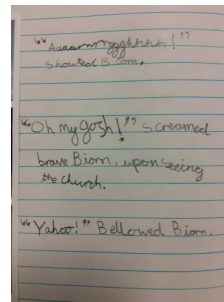 "Aaaarrrrrgggghhhhh!"
Shouted Biorn.
"Oh my gosh!" Screamed
brave Biorn, upon seeing
the church.
"Yahoo!" Bellowed Biorn.